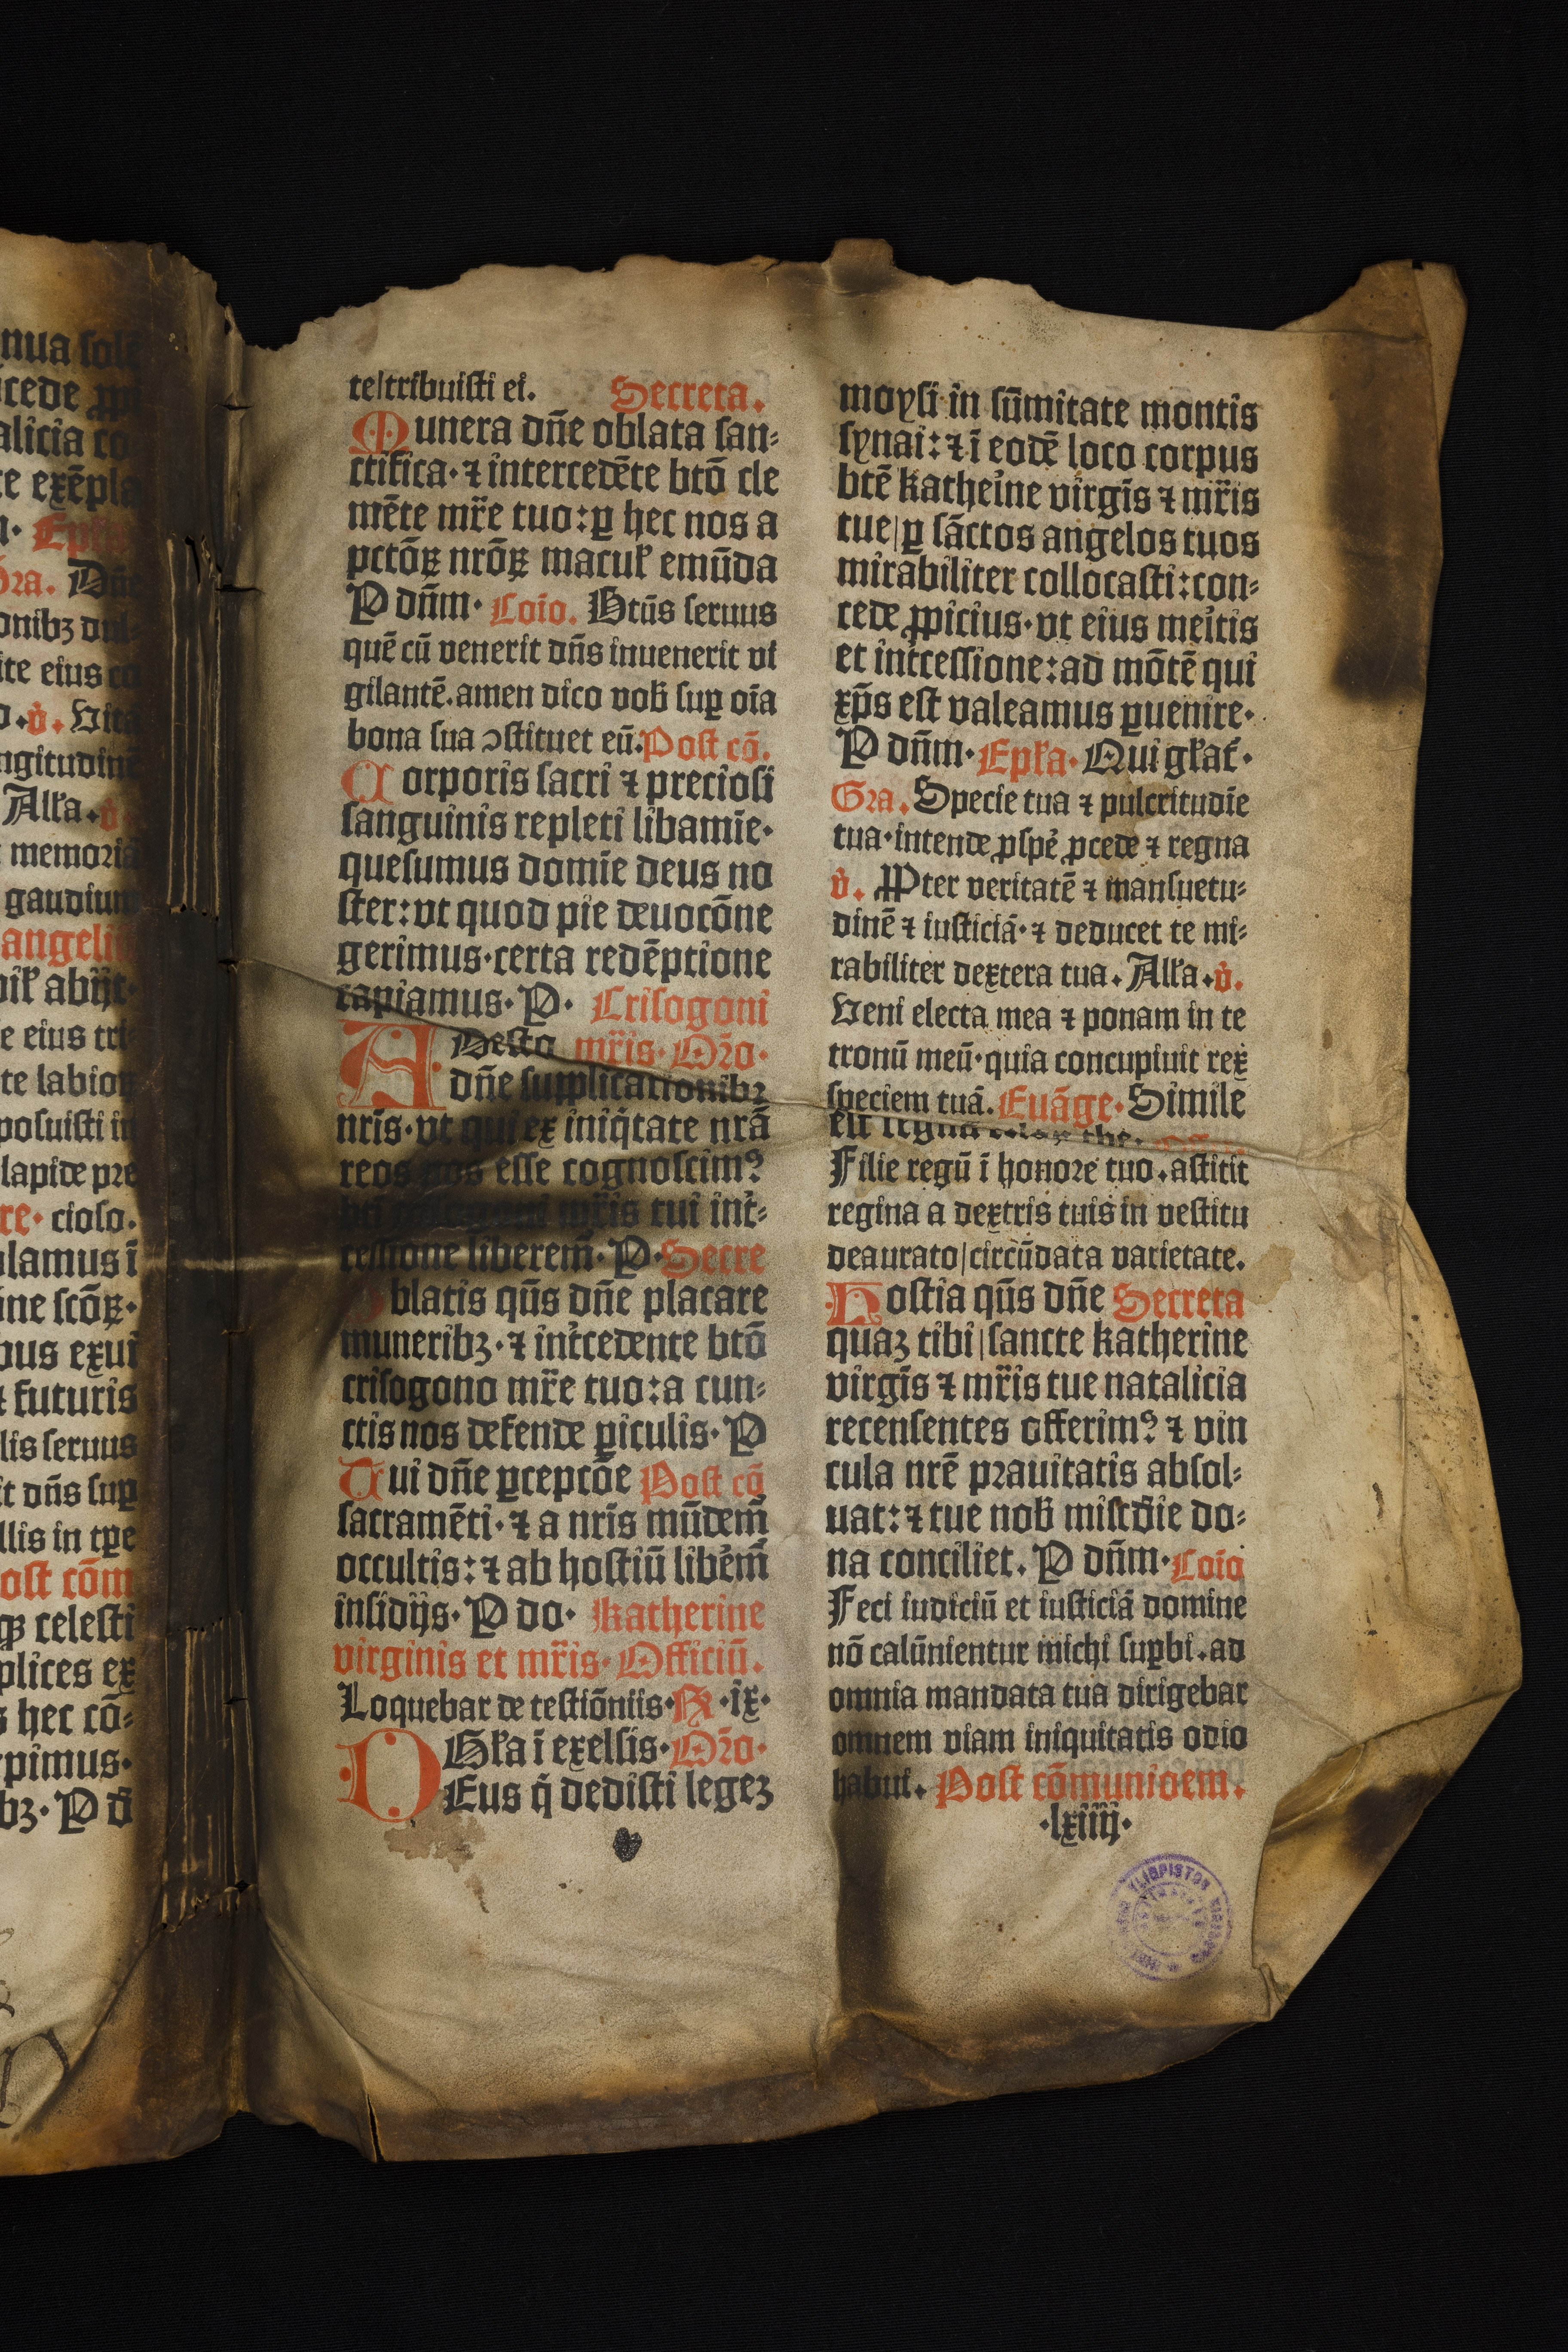 nua solē
cede ꝓpi
alicia co
te exēpla
Epl̄a
Gra. Dn̄e
onibꝫ dul
ite eius co
v̇. Vitā
ngitudinē
All'a. v̇
memoriā
gaudium
angeliū
abijt.
e eius tri
te labioꝝ
posuisti in
lapide pre
re. cioso.
ulamus ī
ine scōꝝ.
ous exui
futuris
lis seruus
it dn̄s suꝑ
llis in tꝑe
ost cōm
celesti
plices ex
s hec cō⸗
pimus.
bꝫ. P d
te/tribuisti ei. Secreta.
Munera dn̄e oblata san⸗
ctifica. ⁊ intercedēte btō cle
mēte mr̄e tuo: ꝑ hec nos a
pctōꝝ nrōꝝ macul' emūda
P dn̄m. Coīo. Btūs seruus
quē cū venerit dn̄s inuenerit vi
gilantē. amen dico vob̄ suꝑ oīa
bona sua ꝯstituet eū. Post cō.
Corporis sacri ⁊ preciosi
sanguinis repleti libamīe.
quesumus domīe deus no
ster: vt quod pie deuocōne
gerimus. certa redēptione
capiamus. P. Crisogoni
ADesto mr̄is. Or̄o.
dn̄e supplicationibꝫ
nr̄is. vt qui ex iniq̄tate nrā
reos nos esse cognoscimꝰ
mr̄is tui int̄⸗
cessione liberem̄. P. Secre
Oblatis qūs dn̄e placare
muneribꝫ. ⁊ int̄cedente btō
crisogono mr̄e tuo: a cun⸗
ctis nos defende ꝑiculis. P
Tui dn̄e ꝑcepcōe Post cō
sacramēti. ⁊ a nr̄is mūdem̄
occultis: ⁊ ab hostiū libēm̄
insidijs. P do. Katherine
virginis et mr̄is. Officiū.
Loquebar de testiōniis. K̄. ix.
Gl'a ī exelsis. Or̄o.
DEus q̄ dedisti legeꝫ
moysi in sūmitate montis
synai: ⁊ ī eodē loco corpus
btē katheīne virgīs ⁊ mr̄is
tue/ ꝑ sāctos angelos tuos
mirabiliter collocasti: con⸗
cede ꝓpicius. vt eius meītis
et int̄cessione: ad mōtē qui
xp̄s est valeamus ꝑuenire.
P dn̄m. Epl̄a. Qui gl'at̄.
Gra. Specie tua ⁊ pulcritudīe
tua. intende ꝓspē ꝓcede ⁊ regna
v̇. Ꝓpter veritatē ⁊ mansuetu⸗
dinē ⁊ iusticiā. ⁊ deducet te mi⸗
rabiliter dextera tua. All'a. v̇.
Veni electa mea ⁊ ponam in te
tronū meū. quia concupiuit rex
speciem tuā. Euāge. Simile
est regnū celoꝝ the.
Filie regū ī honore tuo. astitit
regina a dextris tuis in vestitu
deaurato/ circūdata varietate.
Hostia qūs dn̄e Secreta
quaꝫ tibi/ sancte katherine
virgīs ⁊ mr̄is tue natalicia
recensentes offerimꝰ ⁊ vin
cula nrē prauitatis absol⸗
uat: ⁊ tue nob̄ misc̄die do⸗
na conciliet. P dn̄m. Coīo
Feci iudiciū et iusticiā domine
nō calūnientur michi suꝑbi. ad
omnia mandata tua dirigebar
omnem viam iniquitatis odio
habui. Post cōmunioem.
.lxiiij.